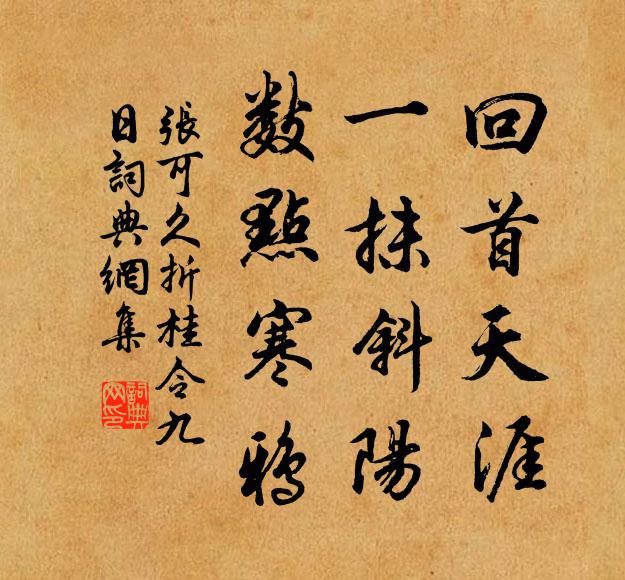 回首天涯
一抹斜陽
數點寒鴉
張可久折桂令九
日詞典網集
詞典
网印